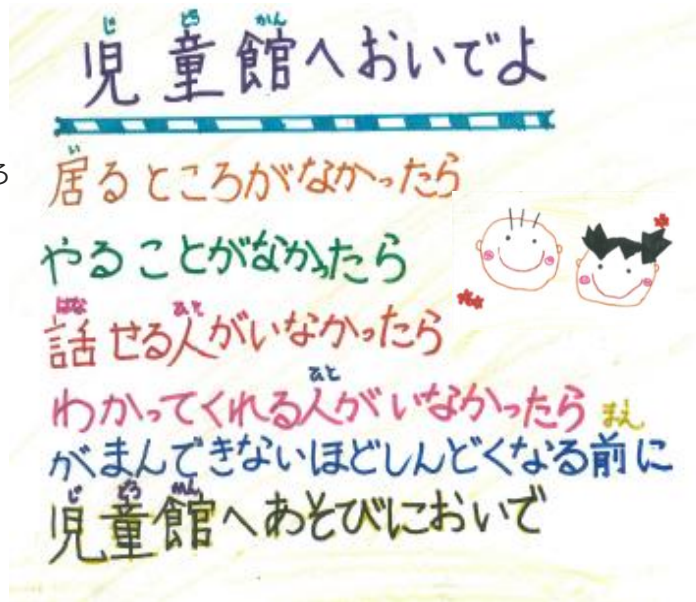 児童館へおいでよ
居るところがなかったら
やることがなかったら
話せる人がいなかったら
わかってくれる人がいなかったら
がまんできないほどしんどくなる前に
児童館へあそびにおいで